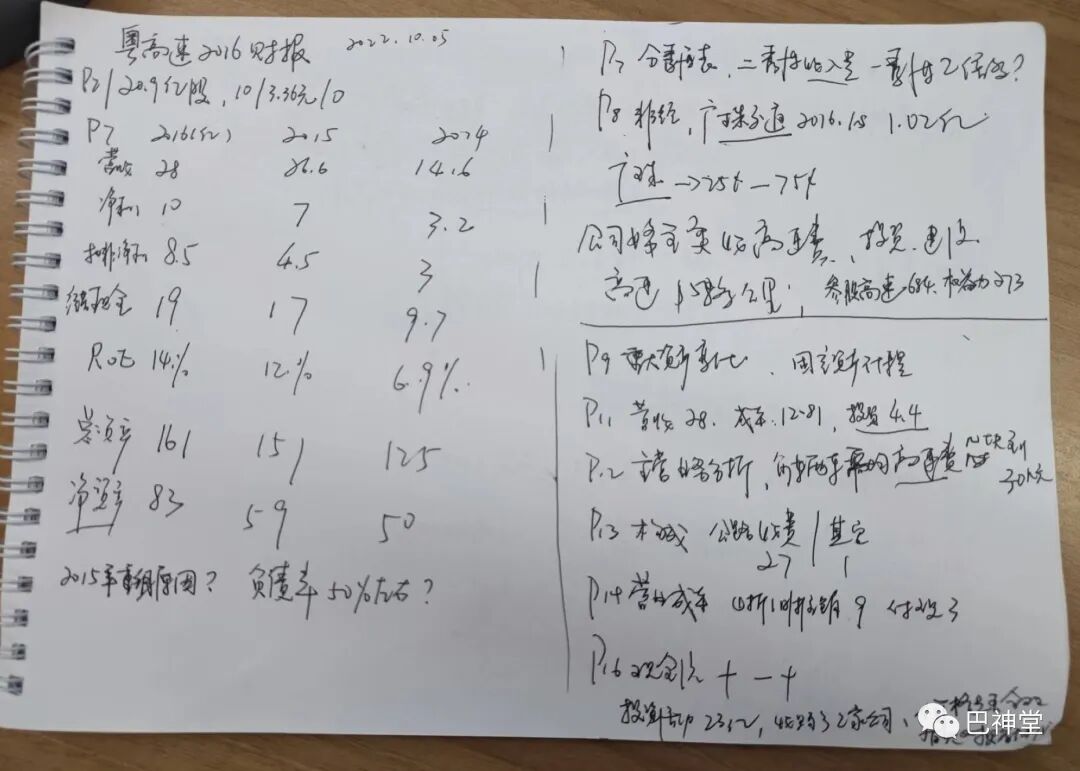 粤高速2016财报 2022.10.05
P2/20.9亿股,10/3.36元/0
P7 2016(亿) 2015 2014
营收 28 26.6 14.6
净利 10 7 3.2
扣非净利 8.5 4.5 3
经现金 19 17 9.7
ROE 14% 12% 6.9%
总资产 161 151 125
净资产 83 59 50
2015年重组原因? 负债率50%左右?
P7 分季度表,二季度收入是一季度2倍的?
P8 非经,广珠交通 2016.18 1.02亿
广珠→25%—75%
公司主要收高速费,投资建设
高速158多公里,参股高速 684,权益为273
P9 重大资产变化、固定资产计提
P11 营收28,成本12.81,投资4.4
P12 主营业务分析, 高速费 30亿元
P13 构成 公路收费 | 其它
27 | 1
P14 营业成本 折旧摊销 9 付设3
P16 现金流 + − +
投资活动 23亿,收购了2家公司、
巴神堂